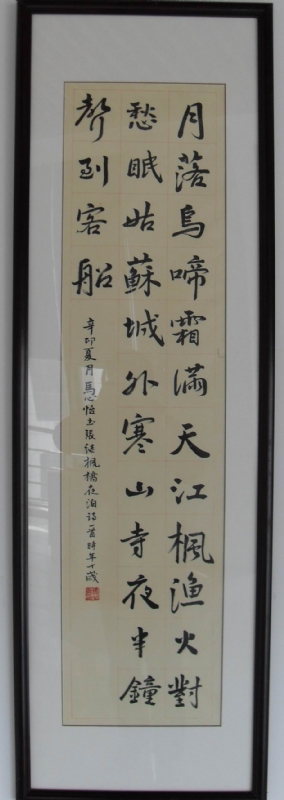 月落烏啼霜滿天江楓漁火對
愁眠姑蘇城外寒山寺夜半鐘
聲到客船
辛卯夏月馬心怡书張継楓橋夜泊詩一首時年十歲